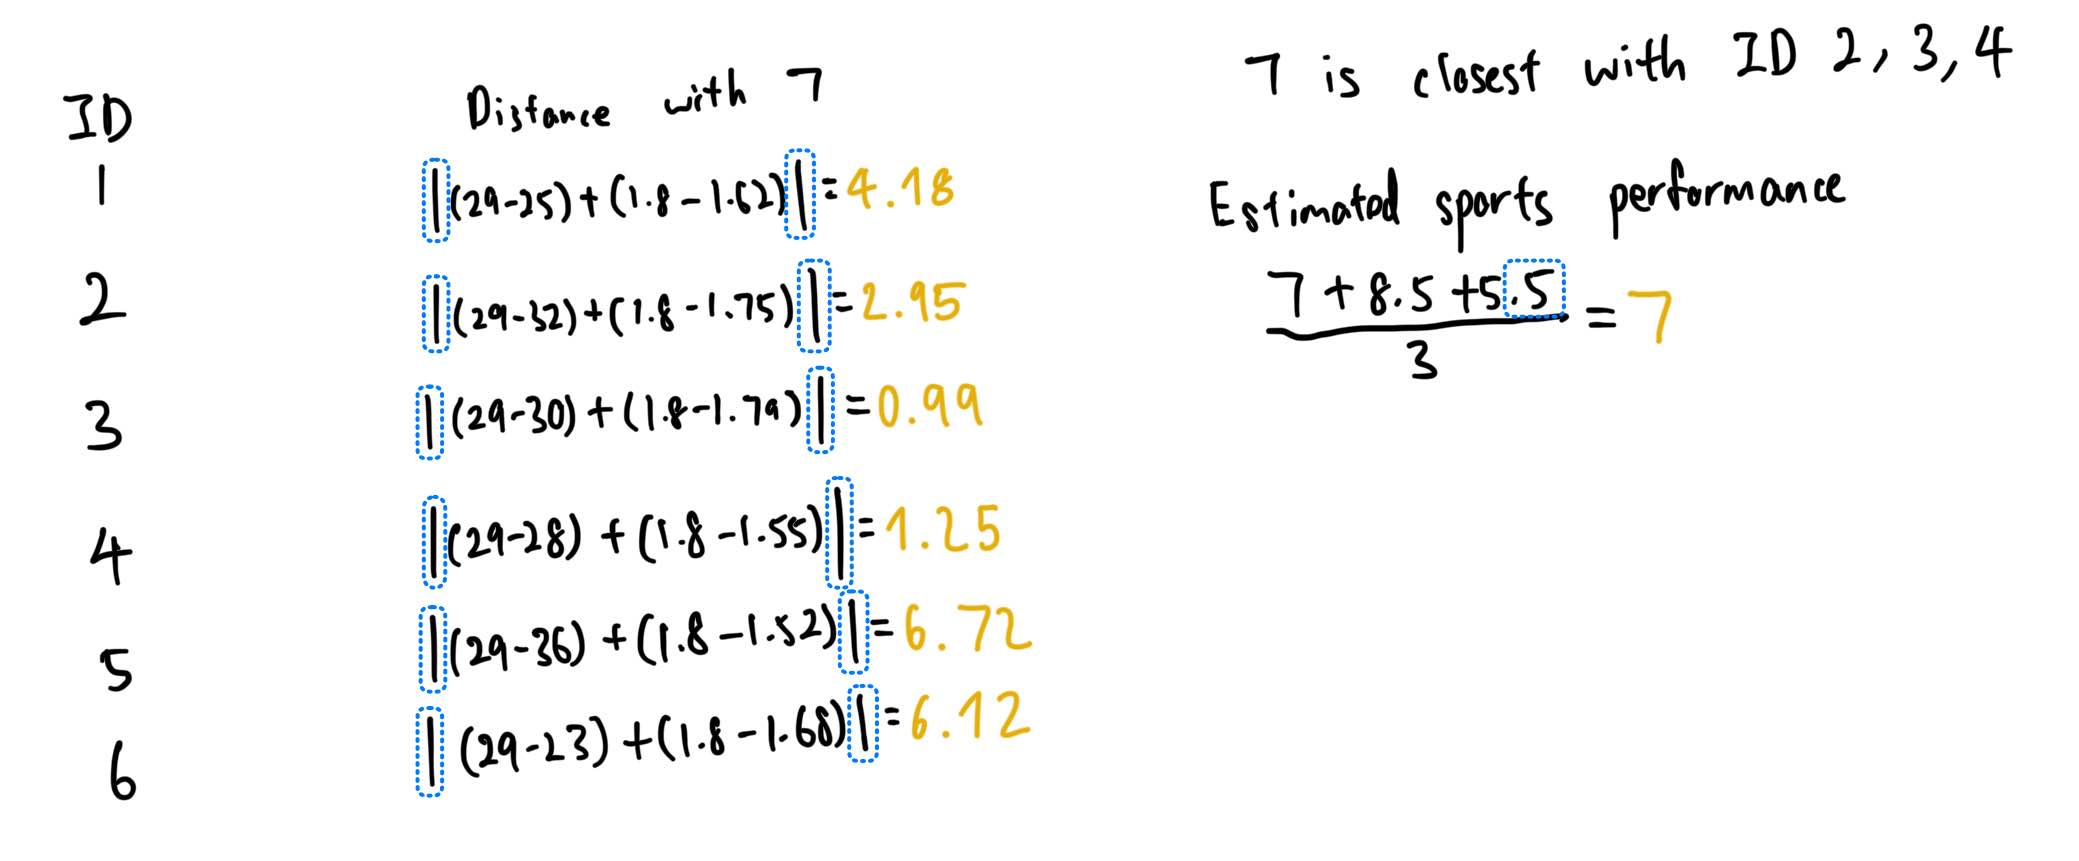 ID
Distance with 7
1
|(29-25)+(1.8-1.62)|=4.18
2
|(29-32)+(1.8-1.75)|=2.95
3
|(29-30)+(1.8-1.79)|=0.99
4
|(29-28)+(1.8-1.55)|=1.25
5
|(29-36)+(1.8-1.52)|=6.72
6
|(29-23)+(1.8-1.68)|=6.12
7 is closest with ID 2, 3, 4
Estimated sports performance
7+8.5+5.5
3
=7